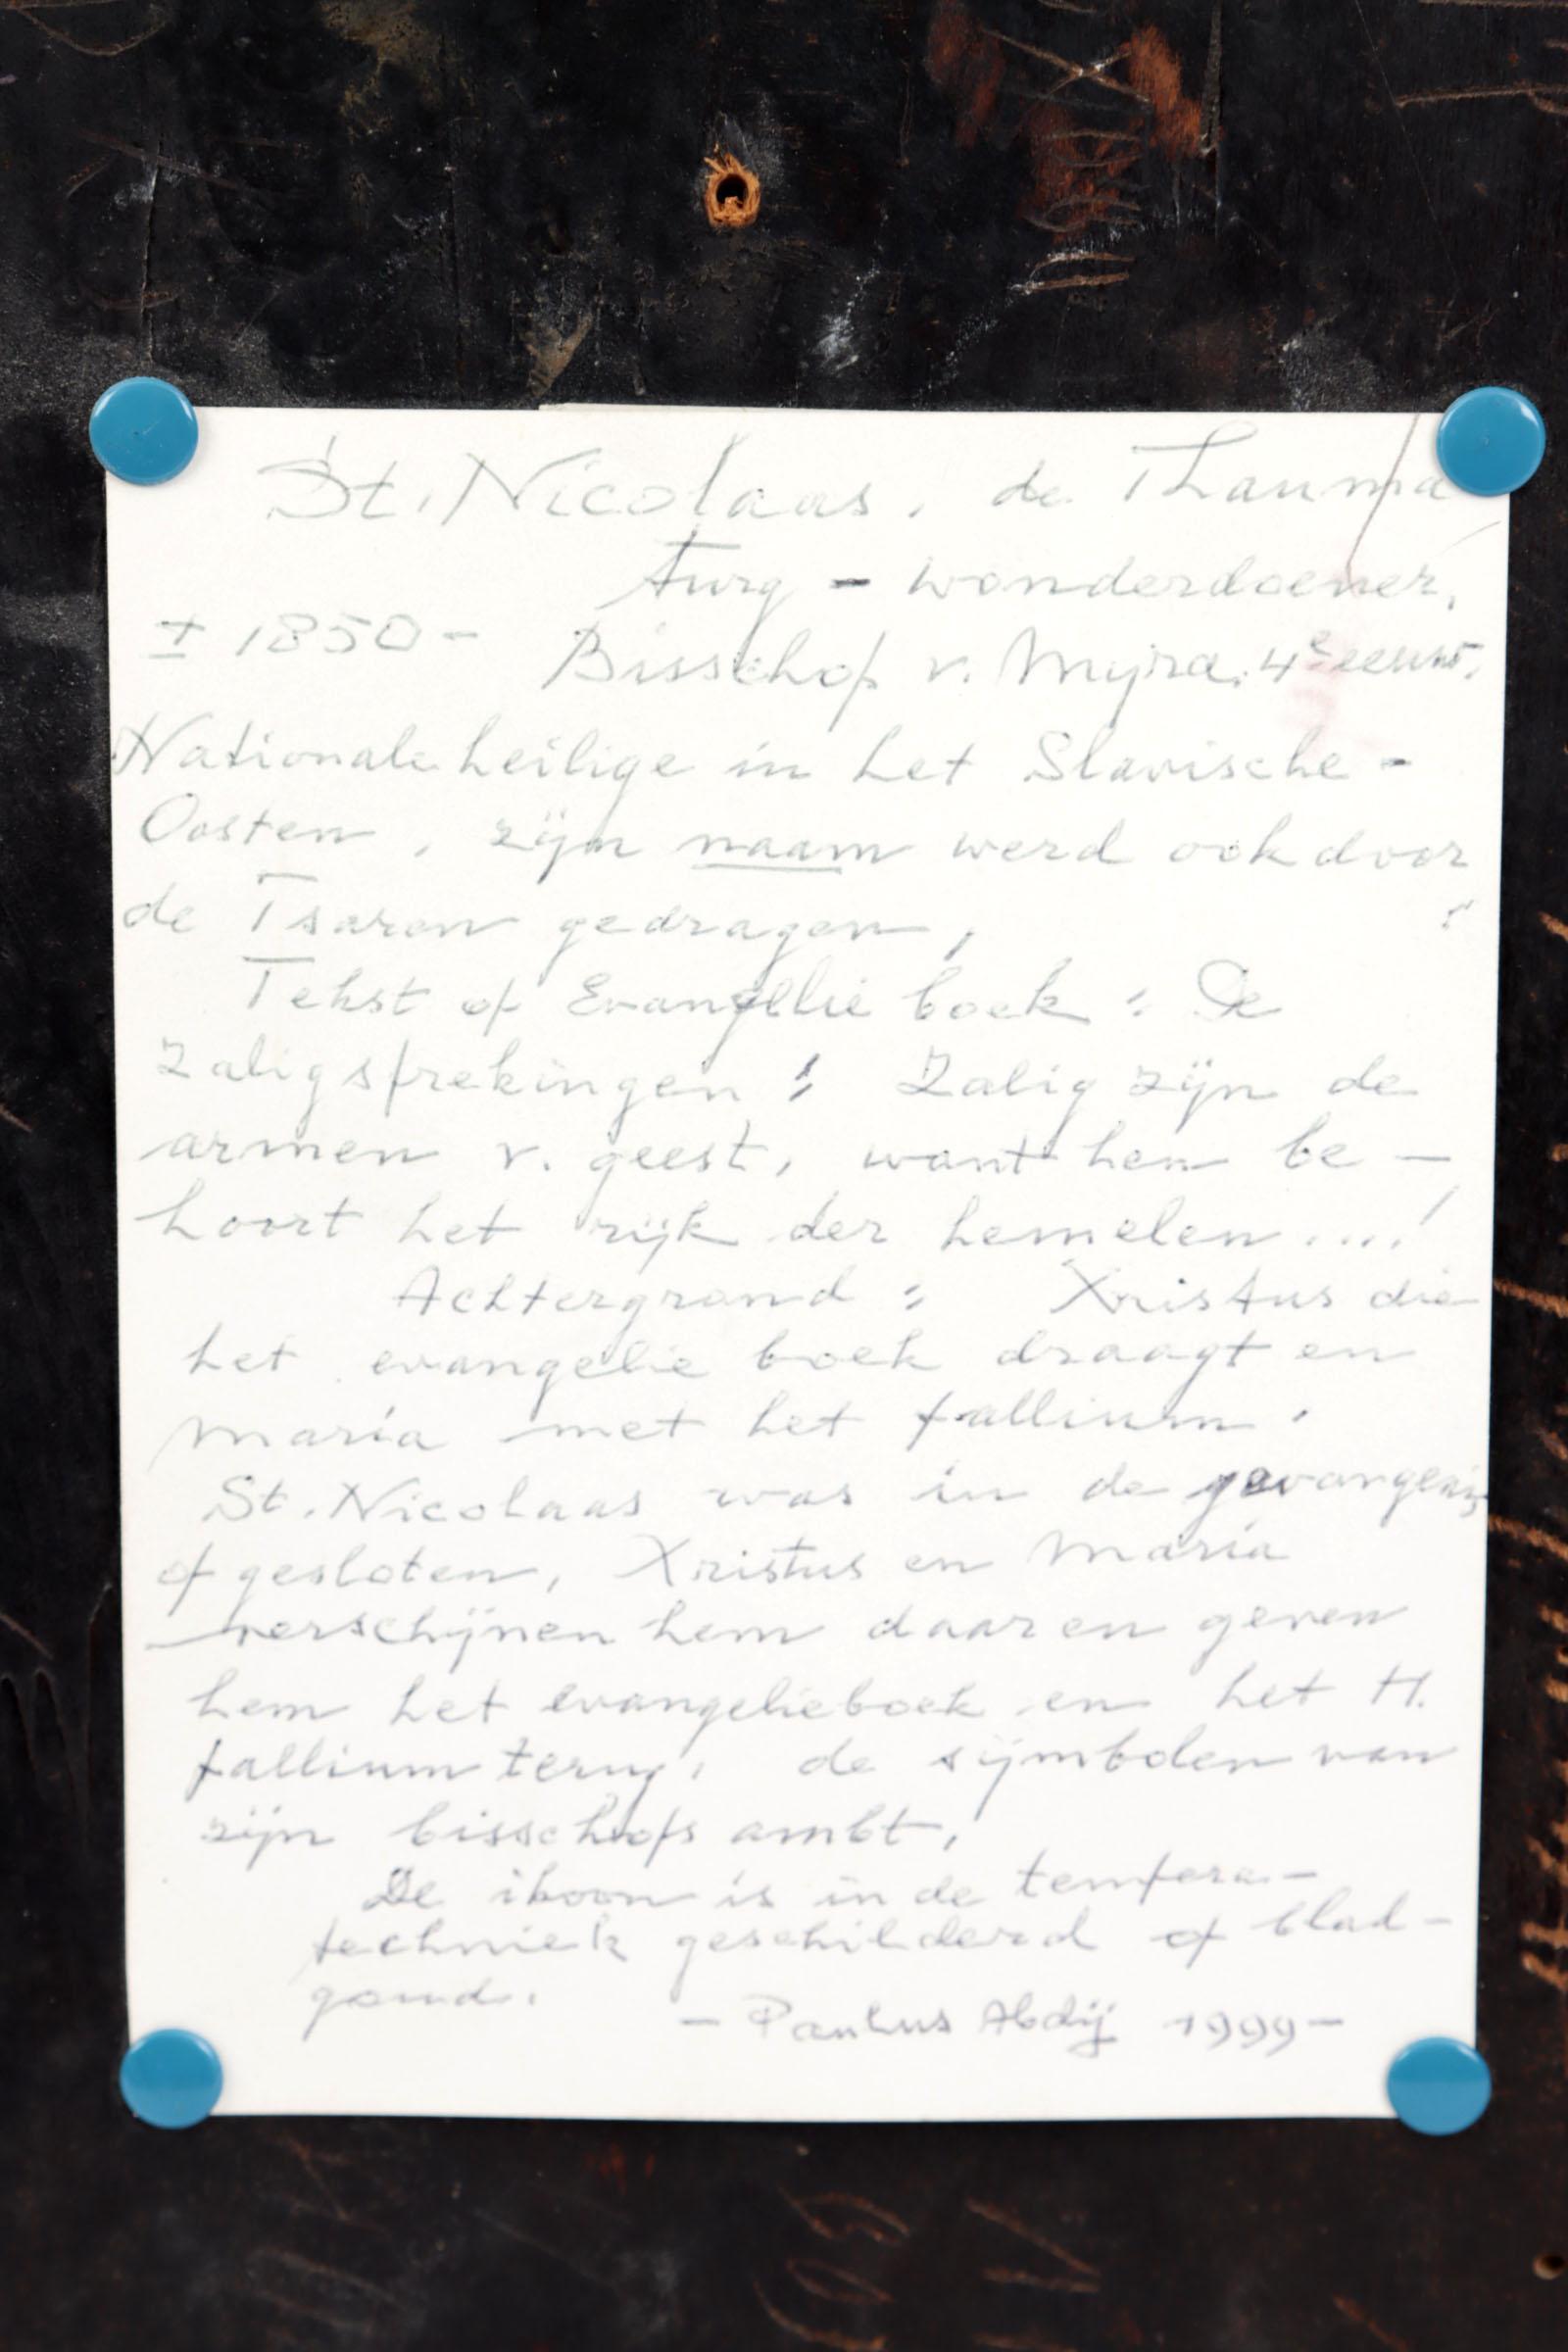 St. Nicolaas, de Thauma
turg - wonderdoener,
± 1850 - Bisschop v. Myra. 4e eeuw.
Nationale heilige in het Slavische -
Oosten, zijn naam werd ook door
de Tsaren gedragen,
Tekst op Evangelie boek : De
Zaligsprekingen : Zalig zijn de
armen v. geest, want hen be -
hoort het rijk der hemelen....!
Achtergrond : Xristus die
het evangelie boek draagt en
Maria met het pallium.
St. Nicolaas was in de gevangenis
opgesloten, Xristus en Maria
verschijnen hem daar en geven
hem het evangelieboek en het H.
pallium terug, de symbolen van
zijn bisschops ambt,
De ikoon is in de tempera -
techniek geschilderd op blad -
goud.
- Paulus Abdij 1999 -